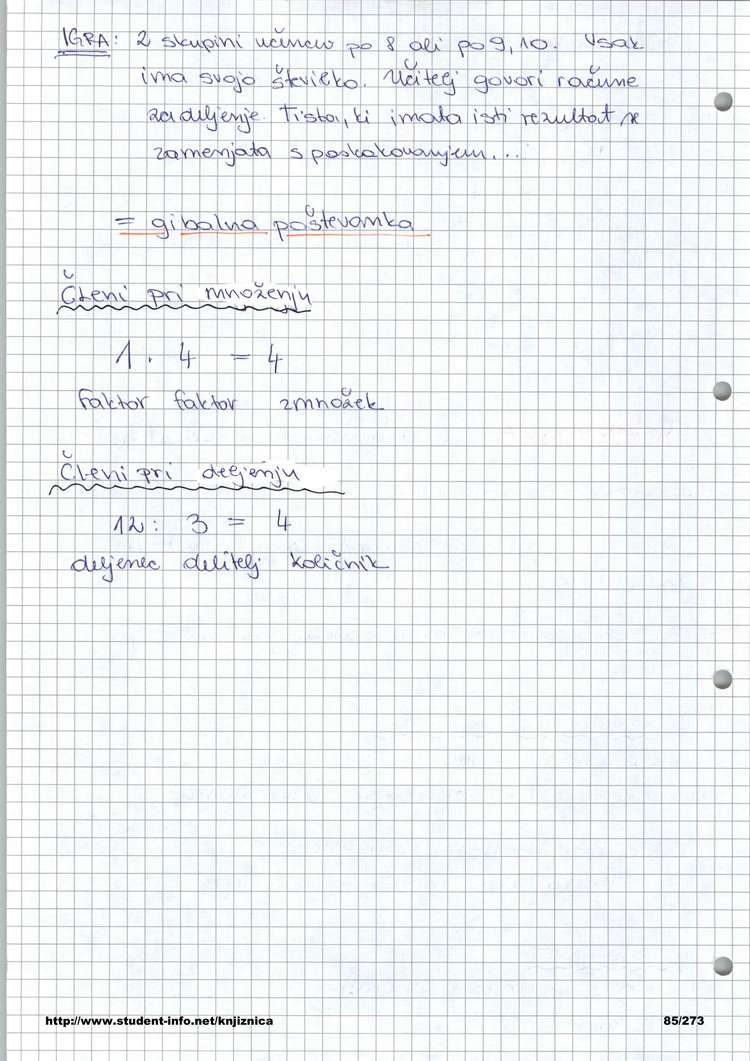 IGRA: 2 skupini učencev po 8 ali po 9, 10. Vsak
ima svojo številko. Učitelj govori račune
za deljenje. Tista, ki imata isti rezultat se
zamenjata s poskakovanjem...
= gibalna poštevanka
Členi pri množenju
1 . 4 = 4
faktor faktor zmnožek
Členi pri deljenju
12 : 3 = 4
deljenec delitelj količnik
http://www.student-info.net/knjiznica 85/273